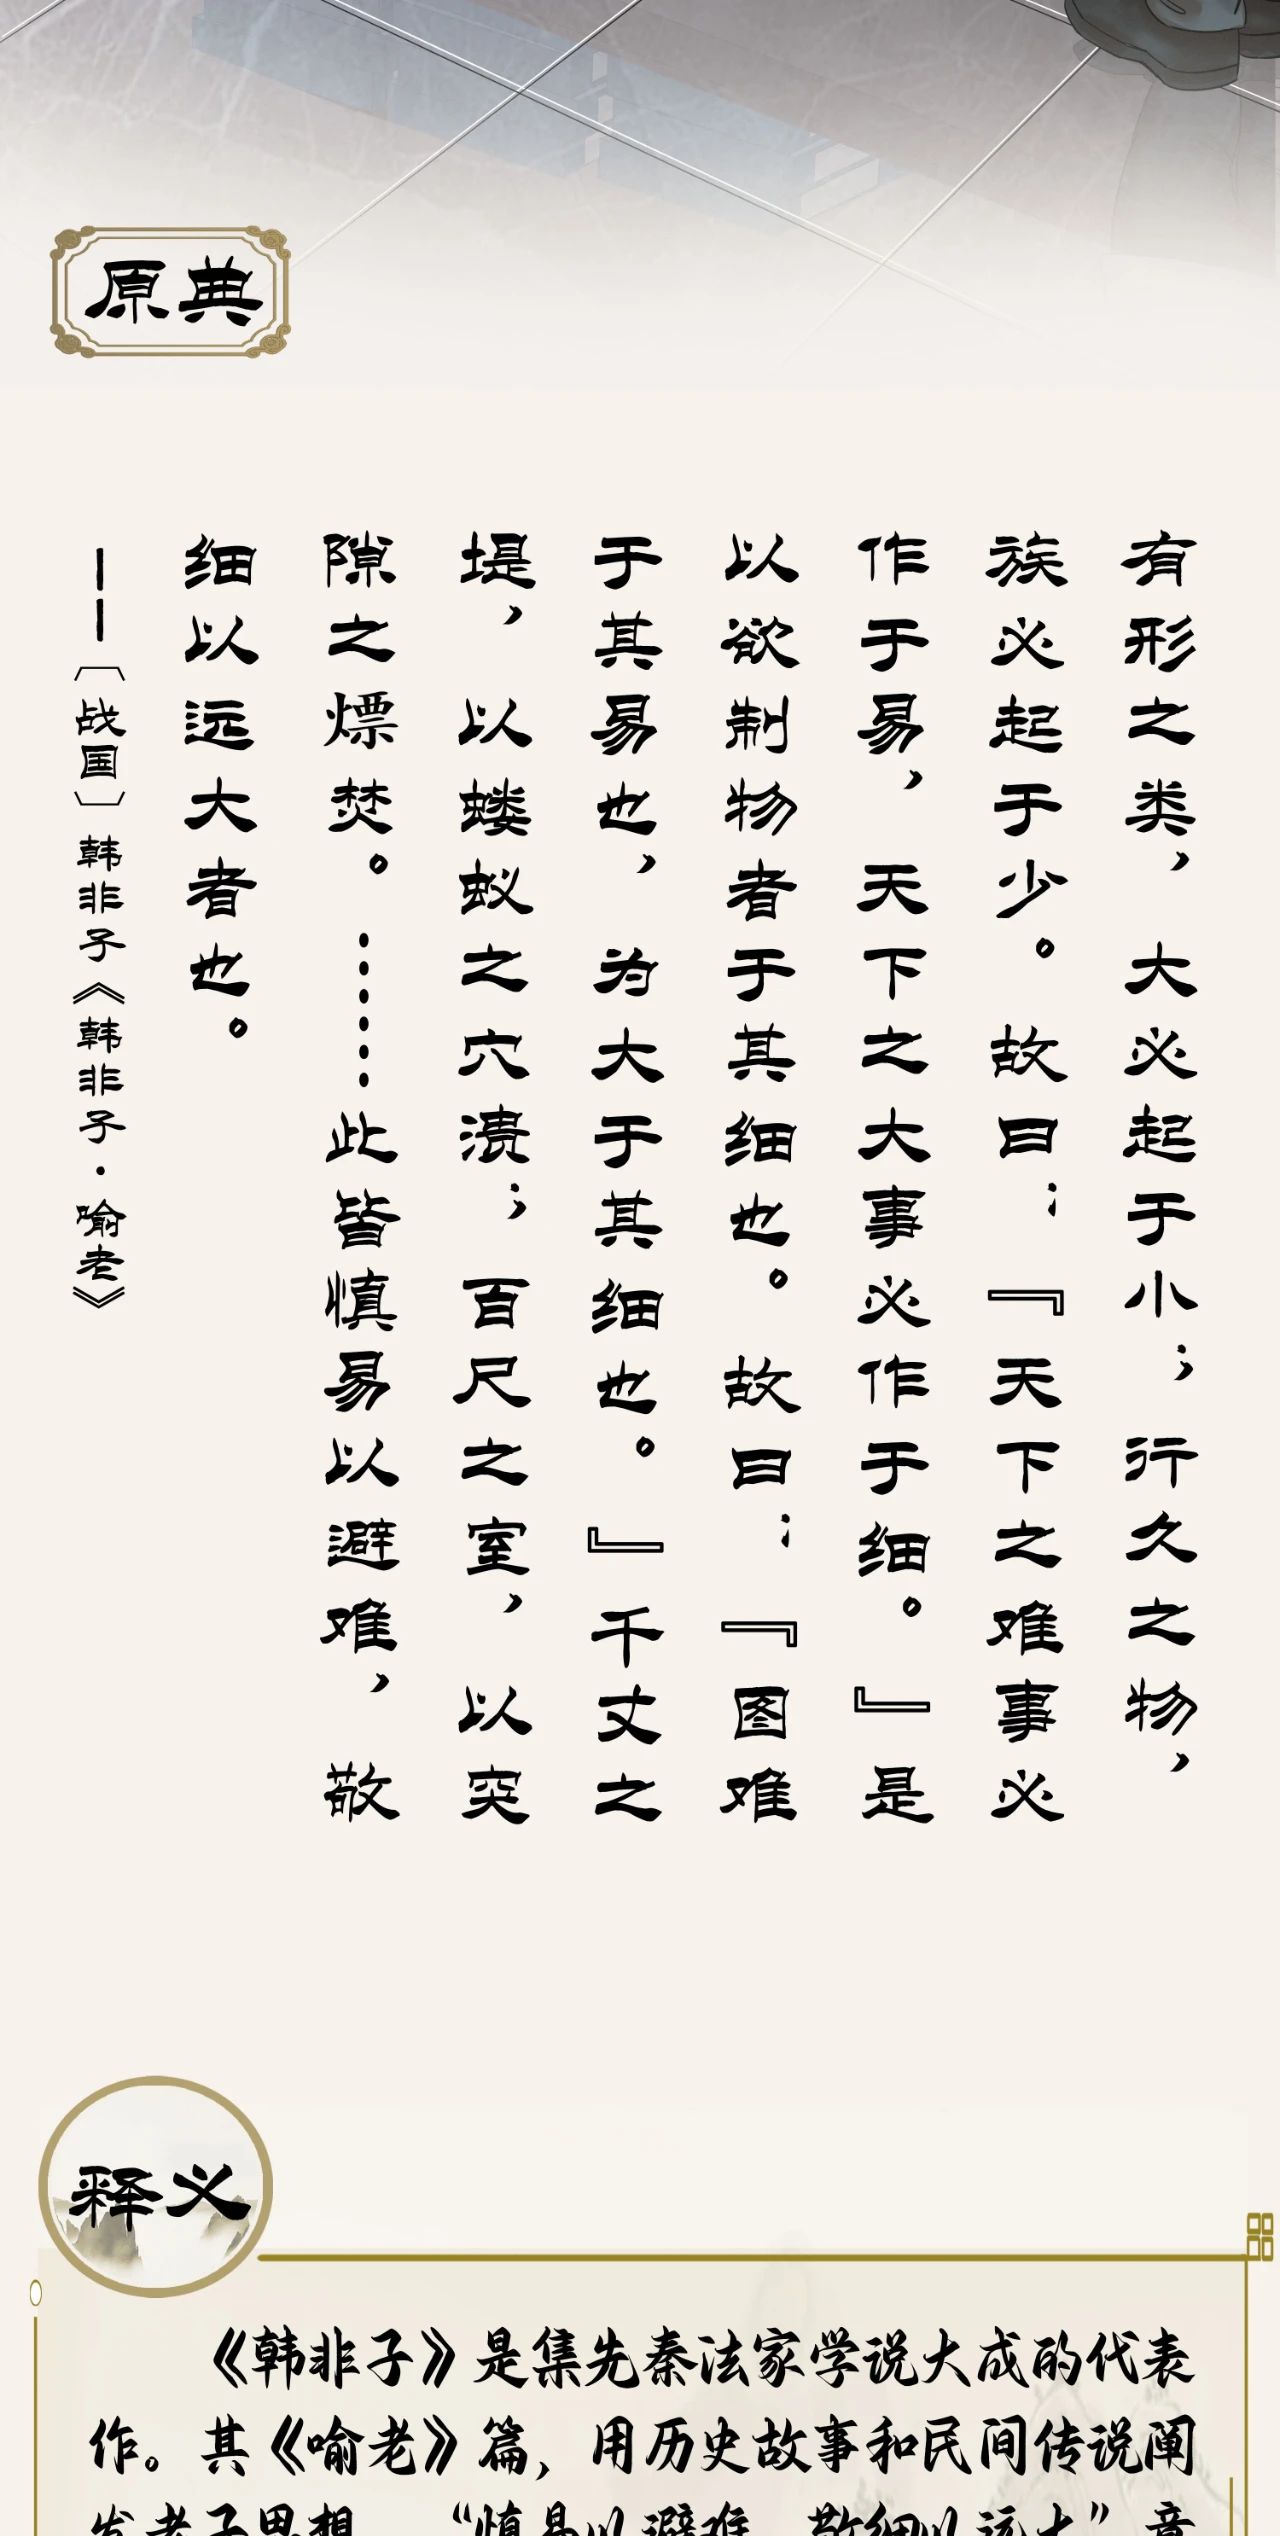 原典
有形之类，大必起于小；行久之物，
族必起于少。故曰：『天下之难事必
作于易，天下之大事必作于细。』是
以欲制物者于其细也。故曰：『图难
于其易也，为大于其细也。』千丈之
堤，以蝼蚁之穴溃；百尺之室，以突
隙之熛焚。……此皆慎易以避难，敬
细以远大者也。
——〔战国〕韩非子《韩非子·喻老》
释义
《韩非子》是集先秦法家学说大成的代表
作。其《喻老》篇，用历史故事和民间传说阐
发老子思想。“慎易以避难，敬细以远大”意